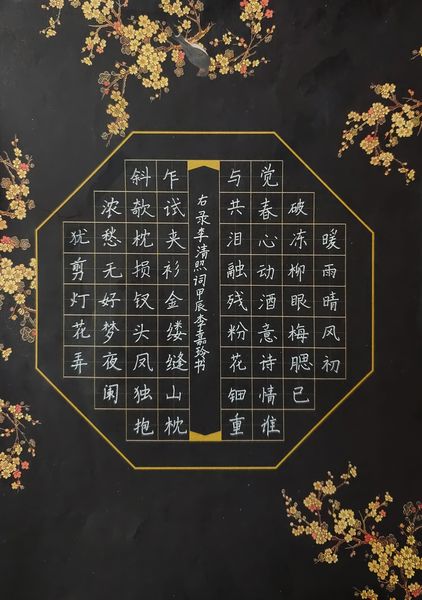 暖雨晴风初
破冻柳眼梅腮已
觉春心动酒意诗情谁
与共泪融残粉花钿重
乍试夹衫金缕缝山枕
斜欹枕损钗头凤独抱
浓愁无好梦夜阑
犹剪灯花弄
右录李清照词甲辰李嘉玲书